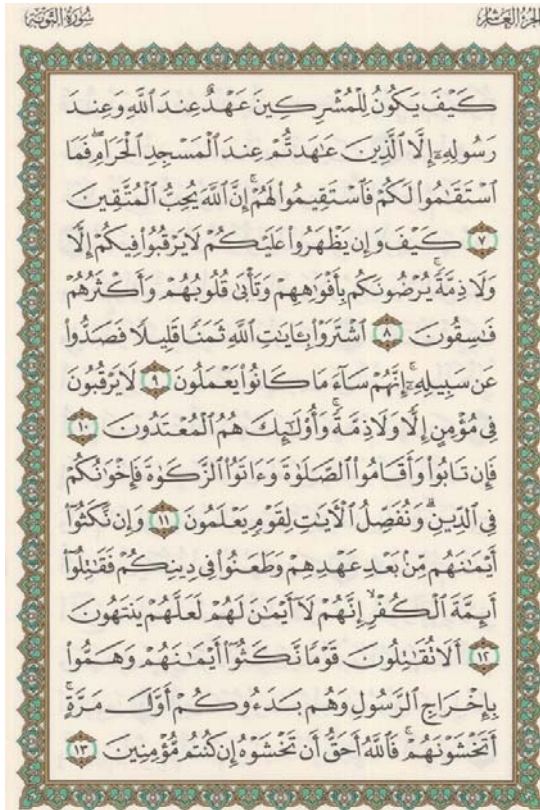 الجزء العاشر
سورة التوبة
كَيْفَ يَكُونُ لِلْمُشْرِكِينَ عَهْدٌ عِندَ ٱللَّهِ وَعِندَ
رَسُولِهِۦٓ إِلَّا ٱلَّذِينَ عَٰهَدتُّمْ عِندَ ٱلْمَسْجِدِ ٱلْحَرَامِۖ فَمَا
ٱسْتَقَٰمُوا۟ لَكُمْ فَٱسْتَقِيمُوا۟ لَهُمْۚ إِنَّ ٱللَّهَ يُحِبُّ ٱلْمُتَّقِينَ
٧ كَيْفَ وَإِن يَظْهَرُوا۟ عَلَيْكُمْ لَا يَرْقُبُوا۟ فِيكُمْ إِلًّا
وَلَا ذِمَّةًۚ يُرْضُونَكُم بِأَفْوَٰهِهِمْ وَتَأْبَىٰ قُلُوبُهُمْ وَأَكْثَرُهُمْ
فَٰسِقُونَ ٨ ٱشْتَرَوْا۟ بِـَٔايَٰتِ ٱللَّهِ ثَمَنًا قَلِيلًا فَصَدُّوا۟
عَن سَبِيلِهِۦٓۚ إِنَّهُمْ سَآءَ مَا كَانُوا۟ يَعْمَلُونَ ٩ لَا يَرْقُبُونَ
فِى مُؤْمِنٍ إِلًّا وَلَا ذِمَّةًۚ وَأُو۟لَٰٓئِكَ هُمُ ٱلْمُعْتَدُونَ ١٠
فَإِن تَابُوا۟ وَأَقَامُوا۟ ٱلصَّلَوٰةَ وَءَاتَوُا۟ ٱلزَّكَوٰةَ فَإِخْوَٰنُكُمْ
فِى ٱلدِّينِۗ وَنُفَصِّلُ ٱلْـَٔايَٰتِ لِقَوْمٍ يَعْلَمُونَ ١١ وَإِن نَّكَثُوٓا۟
أَيْمَٰنَهُم مِّنۢ بَعْدِ عَهْدِهِمْ وَطَعَنُوا۟ فِى دِينِكُمْ فَقَٰتِلُوٓا۟
أَئِمَّةَ ٱلْكُفْرِۙ إِنَّهُمْ لَآ أَيْمَٰنَ لَهُمْ لَعَلَّهُمْ يَنتَهُونَ
١٢ أَلَا تُقَٰتِلُونَ قَوْمًا نَّكَثُوٓا۟ أَيْمَٰنَهُمْ وَهَمُّوا۟
بِإِخْرَاجِ ٱلرَّسُولِ وَهُم بَدَءُوكُمْ أَوَّلَ مَرَّةٍۚ
أَتَخْشَوْنَهُمْۚ فَٱللَّهُ أَحَقُّ أَن تَخْشَوْهُ إِن كُنتُم مُّؤْمِنِينَ ١٣